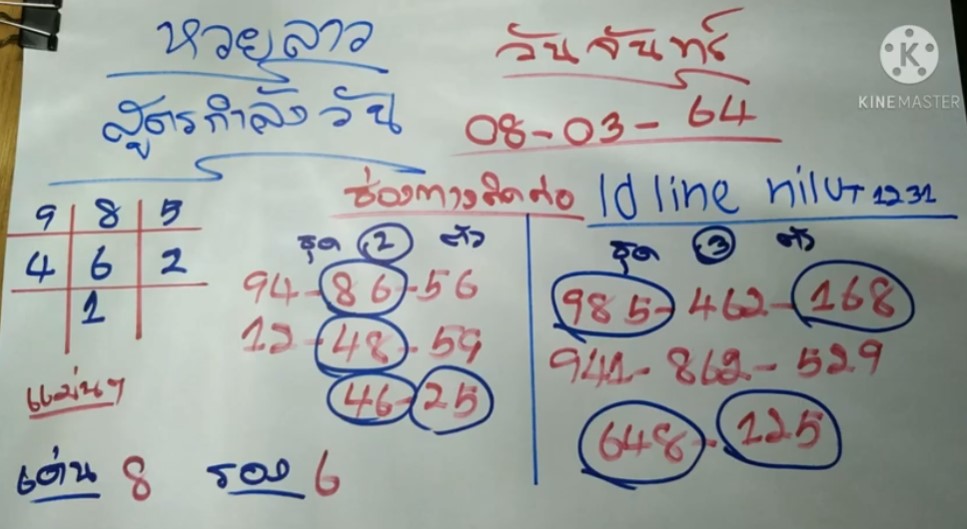 หวยลาว วันจันทร์
สูตรกำลังวัน 08-03-64
KINEMASTER
ช่องทางติดต่อ Id line nilut1231
9 8 5
4 6 2
1
ชุด 2 ตัว
94-86-56
12-48-59
46-25
ชุด 3 ตัว
985-462-168
941-862-529
648-125
แม่นๆ
เด่น 8 รอง 6